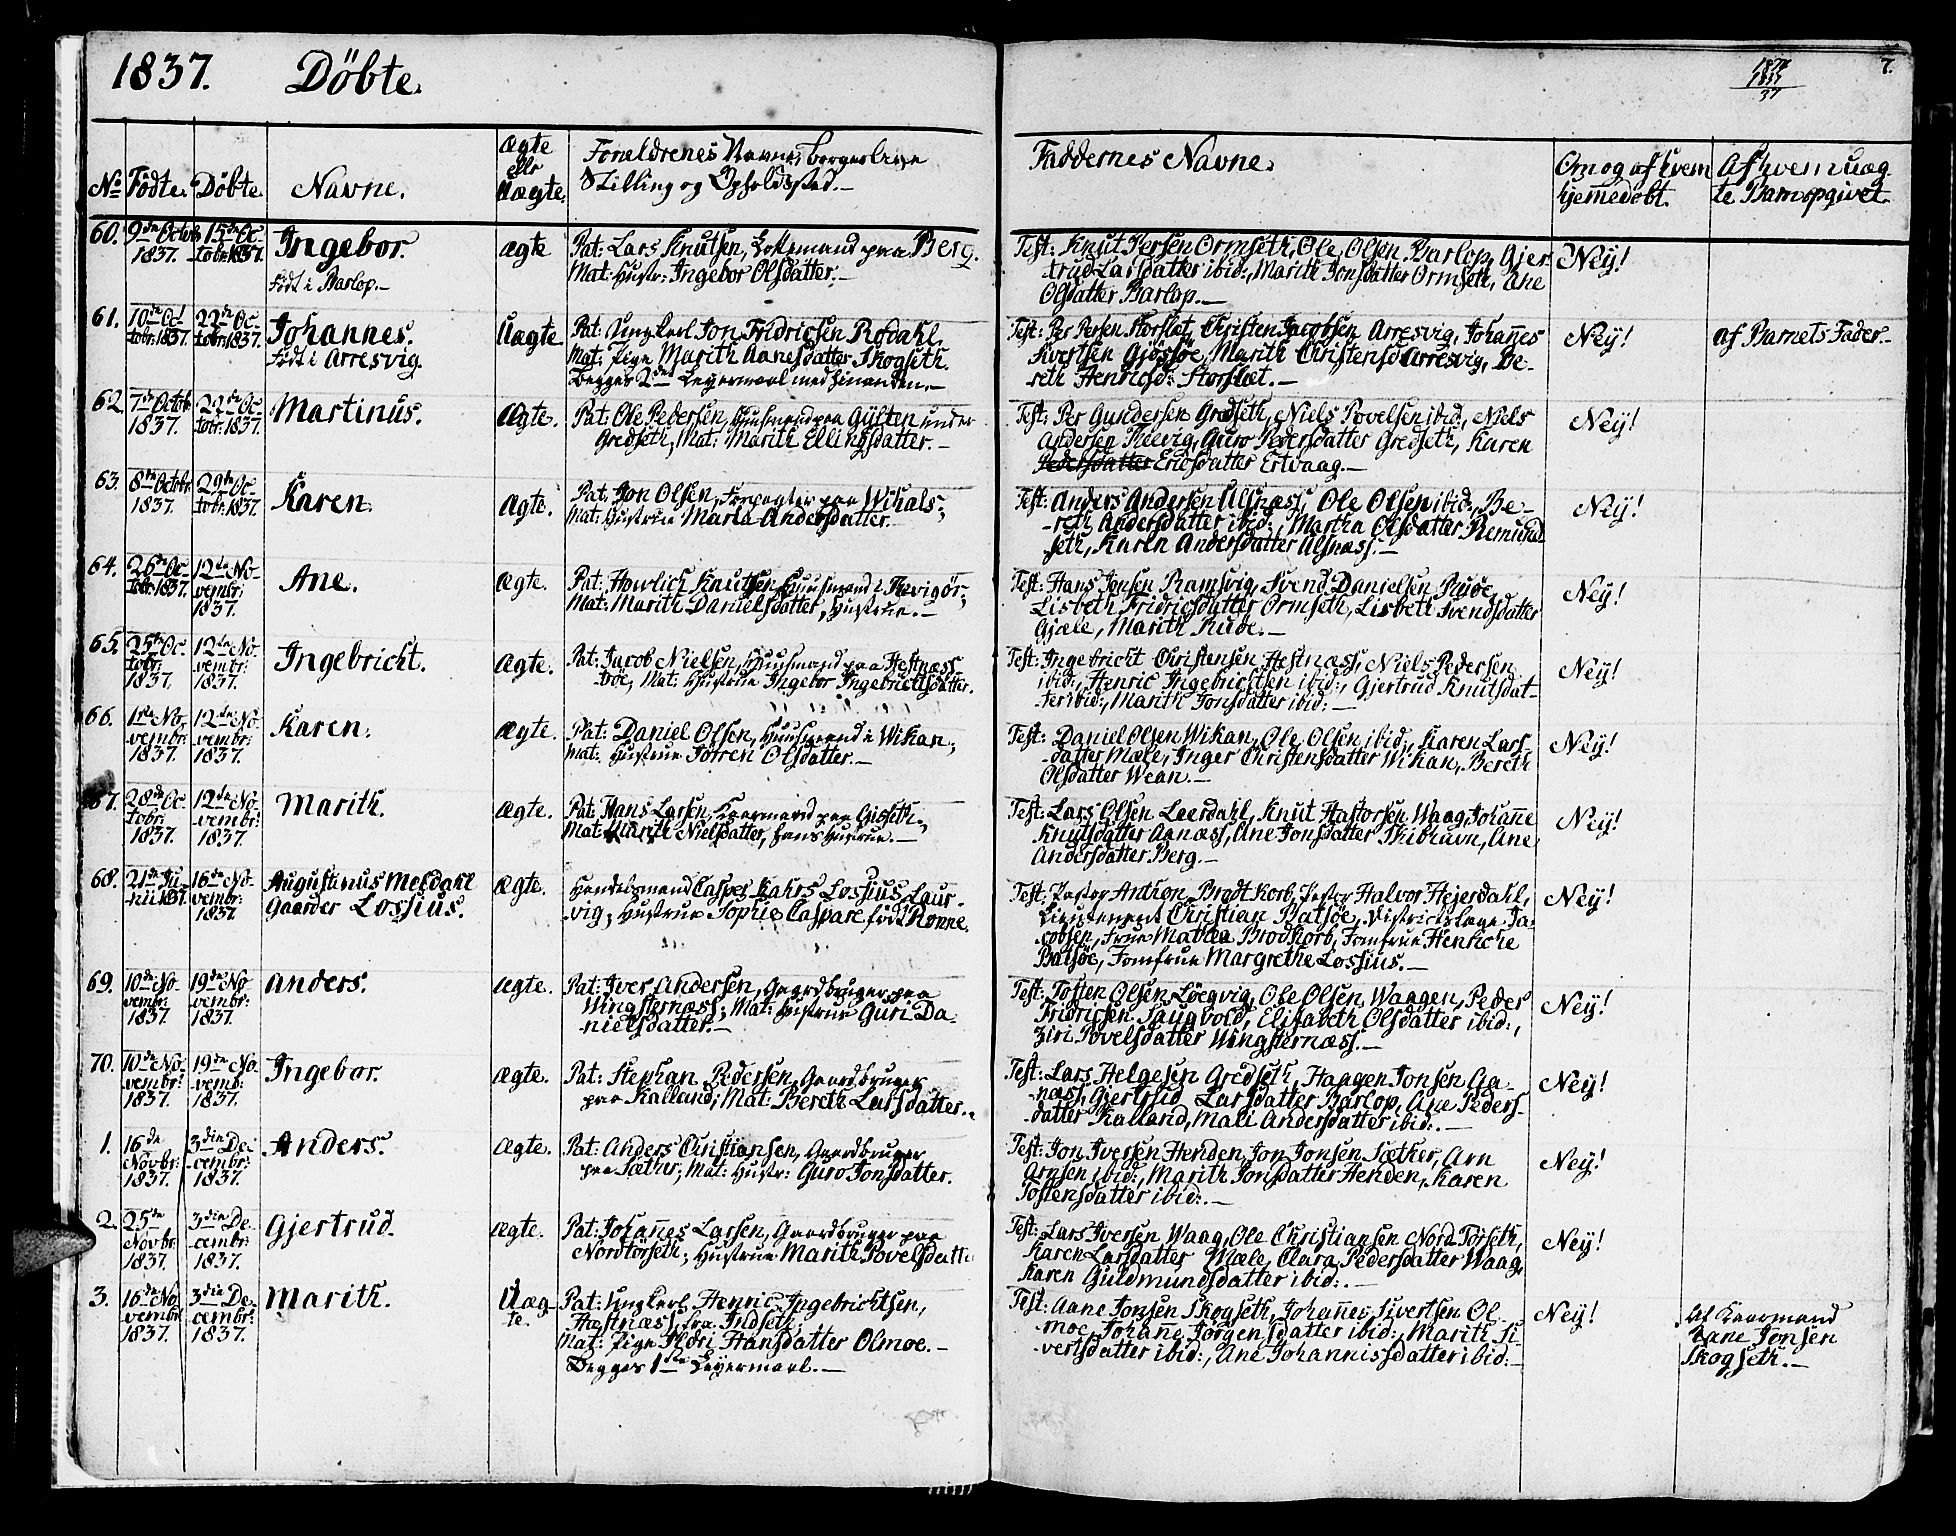 1837. Döbte.
1874
1837
37
7.
No Födte. Döbte. Navne. Ægte eller Uægte. Forældrenes Navne, borgerlige
Stilling og Opholdssted.—
Faddernes Navne.
Om og af hvem
hjemmedöbt.
Af hvem uæg
te Barn opgivet.
60. 9de Octob 1837. 15de Oc tobr: 1837. Ingebor. Födt i Barlop.— Ægte
Pat: Lars Knutsen, Lottemand paa Berg.
Mat: Hustr: Ingebor Olsdatter.—
Test: Knut Persen Ormseth, Ole Olsen Barlop, Gjer
trud Larsdatter ibid:, Marith Jonsdatter Ormseth, Ane
Olsdatter Barlop.—
Ney!
61. 10de Oc- tobr: 1837. 22de Oc- tobr: 1837. Johannes. Födt i Arresvig. Uægte
Pat: Ungkarl Jon Fridricsen Rodahl.
Mat: Pige Marith Aanesdatter Skogseth.
Begges 2det Leyermaal med hinanden.—
Test: Per Persen Storslæt, Christen Jacobsen Arresvig, Johannes
Sivertsen Gjössöe, Marith Christensd Arresvig, Be-
reth Henricsd: Storslæt.—
Ney!
af Barnets Fader.—
62 7de Octob 1837. 22de Oc- tobr: 1837. Martinus. Ægte.
Pat: Ole Pedersen, Huusmand paa Gylten under
Gredseth, Mat: Marith Ellingsdatter.—
Test: Per Gundersen Gredseth, Niels Povelsen ibid:, Niels
Andersen Reevig, Guro Pedersdatter Gredseth, Karen
Pedersdatter Ericsdatter Ertvaag.—
Ney!
63. 8de Octobr 1837. 29de Oc- tobr: 1837. Karen. Ægte.
Pat: Jon Olsen, Forpagter paa Wihals;
Mat: Hustrue Marta Andersdatter.
Test: Anders Andersen Ulsnæss, Ole Olsen ibid:, Be-
reth Andersdatter ibid:, Martha Olsdatter Remund
seth, Karen Andersdatter Alsnæss.—
Ney!
64. 26de Oc- tobr: 1837. 12de No- vembr: 1837. Ane. Ægte.
Pat: Howlich Knutsen, Huusmand i Revigör;
Mat: Marith Danielsdatter, Hustrue.—
Test: Hans Jonsen Ramsvig, Svend Danielsen Rude,
Lisbeth Fridricsdatter Ormseth, Lisbeth Svendsdatter
Gjæle, Marith Rude.—
Ney!
65. 25de Oc- tobr: 1837. 12de No- vembr: 1837. Ingebricht. Ægte.
Pat: Jacob Nielsen, Huusmand paa Hestnæss-
öde; Mat: Hustrue Ingebor Ingebrictsdatter.
Test: Ingebricht Christensen Hestnæss, Niels Pedersen
ibid:, Henric Ingebrichtsen ibid:, Gjertrud Knutsdat-
ter ibid:, Marith Jonsdatter ibid:—
Ney!
66. 1ste No- vembr: 1837. 12de No- vembr: 1837. Karen. Ægte.
Pat: Daniel Olsen, Huusmand i Wikan;
Mat: Hustrue Sörren Olsdatter.—
Test: Daniel Olsen Wikan, Ole Olsen ibid:, Karen Lars-
datter Mæle, Inger Christensdatter Wikan, Bereth
Olsdatter Wean.—
Ney!
67. 28de Oc- tobr: 1837. 12de No- vembr: 1837. Marith. Ægte.
Pat: Hans Larsen, Kaarmand paa Gisseth;
Mat: Marith Nielsdatter, Hans Hustrue.—
Test: Lars Olsen Leerdahl, Knut Hastorsen Waag, Johanne
Knutsdatter Aanæss, Ane Jonsdatter Skibnavn, Ane
Andersdatter Berg.—
Ney!
68. 21de Ju- nii 1837. 16de No- vembr: 1837. Augustinus Meldahl
Gaarder Lossius. Ægte.
Handelsmand Casper Kahrs Lossius, Laur-
vig; Hustrue Sophie Caspare föd Rönne.
Test: Pastor Anthon Brodtkorb, Pastor Halvor Hejerdahl,
Lieutenant Christian Batsöe, Districtslæge Ja-
cobsen, Frue Mathea Brodtkorb, Jomfrue Henriche
Batsöe, Jomfrue Margrethe Lossius.—
Ney!
69. 10de No- vembr: 1837. 19de No- vembr: 1837. Anders. Ægte.
Pat: Iver Andersen, Gaardbruger paa
Wingsternæss; Mat: Hustrue Guri Da-
nielsdatter.—
Test: Tosten Olsen Löegvig, Ole Olsen Waagen, Peder
Fridricsen Saugvold, Elisabeth Olsdatter ibid:,
Siri Povelsdatter Wingsternæss.—
Ney!
70. 10de No- vembr: 1837. 19de No- vemb: 1837. Ingebor. Ægte.
Pat: Stephan Pedersen, Gaardbruger
paa Kalland; Mat: Bereth Larsdatter.
Test: Lars Helgesen Gredseth, Haagen Jonsen Aa-
næss, Gjertrud Larsdatter Barlop, Ane Peders-
datter Kalland, Mali Andersdatter ibid:.—
Ney!
1. 16de Novbr: 1837. 3die De- cembr: 1837. Anders. Ægte.
Pat: Anders Christiansen, Gaardbruger
paa Sæther; Mat: Hustr: Guro Jonsdatter.
Test: Jon Iversen Henden, Jon Jonsen Sæther, Arn
Arnsen ibid:, Marith Jonsdatter Henden, Karen
Tostensdatter ibid:.—
Ney!
2. 25de Novbr: 1837. 3die De- cembr: 1837. Gjertrud. Ægte.
Pat: Johannes Larsen, Gaardbruger paa
Nordtörseth; Hustrue Marith Povelsdatt:
Test: Lars Iversen Waag, Ole Christiansen Nord-Törseth,
Karen Larsdatter Mæle, Clara Pedersdatter Waag,
Karen Guldmundsdatter ibid:.—
Ney!
3. 16de No- vembr: 1837. 3die De- cembr: 1837. Marith. Uæg- te.
Pat: Ungkarl Henric Ingebrichtsen,
Hæstnæss, fra Indseth;
Mat: Pige Hansdatter Olmoe.—
Begges 1ste Leyermaal.—
Test: Aane Jonsen Skogseth, Johannes Sivertsen Ol-
moe, Johanne Jörgensdatter ibid:, Marith Si-
vertsdatter ibid:, Ane Johannisdatter ibid:—
Ney!
Af Kaarmand
Aane Jonsen
Skogseth.—